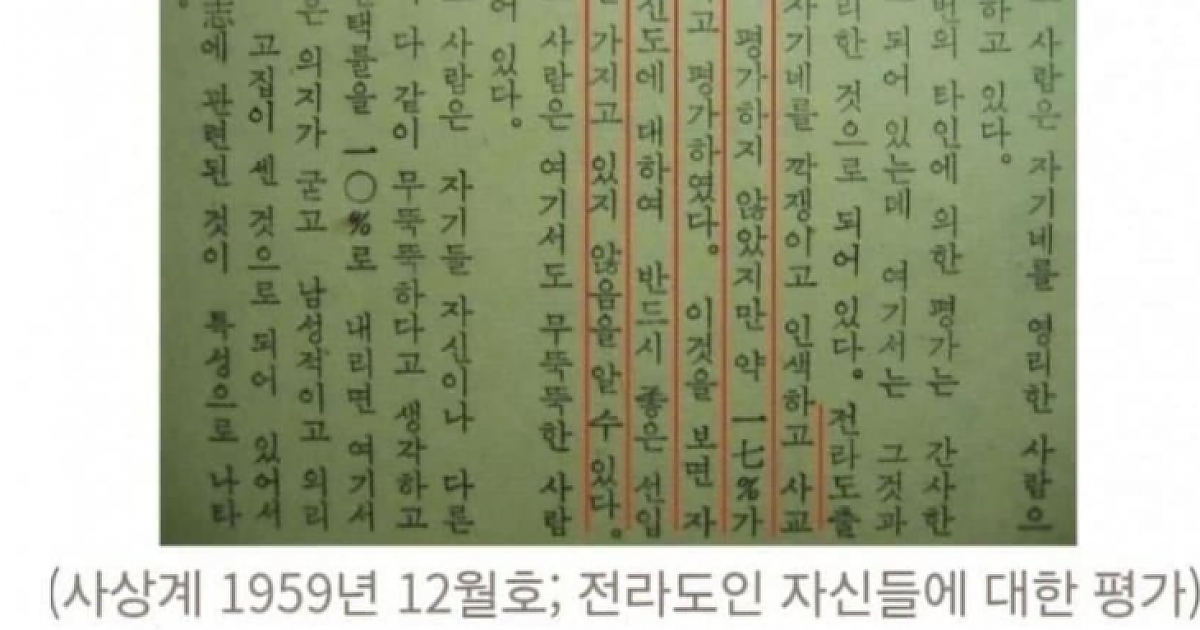 사람은 자기네를 영리한 사람으
하고 있다.
번의 타인에 의한 평가는 간사한
되어 있는데 여기서는 그것과
리한 것으로 되어 있다. 전라도출
자기네를 깍쟁이고 인색하고 사교
평가하지 않았지만 약 一七%가
고 평가하였다. 이것을 보면 자
신도에 대하여 반드시 좋은 선입
가지고 있지 않음을 알 수 있다.
사람은 여기서도 무뚝뚝한 사람
어 있다.
사람은 자기들 자신이나 다른
다 같이 무뚝뚝하다고 생각하고
택률을 一〇%로 내리면 여기서
은 의지가 굳고 남성적이고 의리
고집이 센 것으로 되어 있어서
志에 관련된 것이 특성으로 나타
(사상계 1959년 12월호; 전라도인 자신들에 대한 평가)